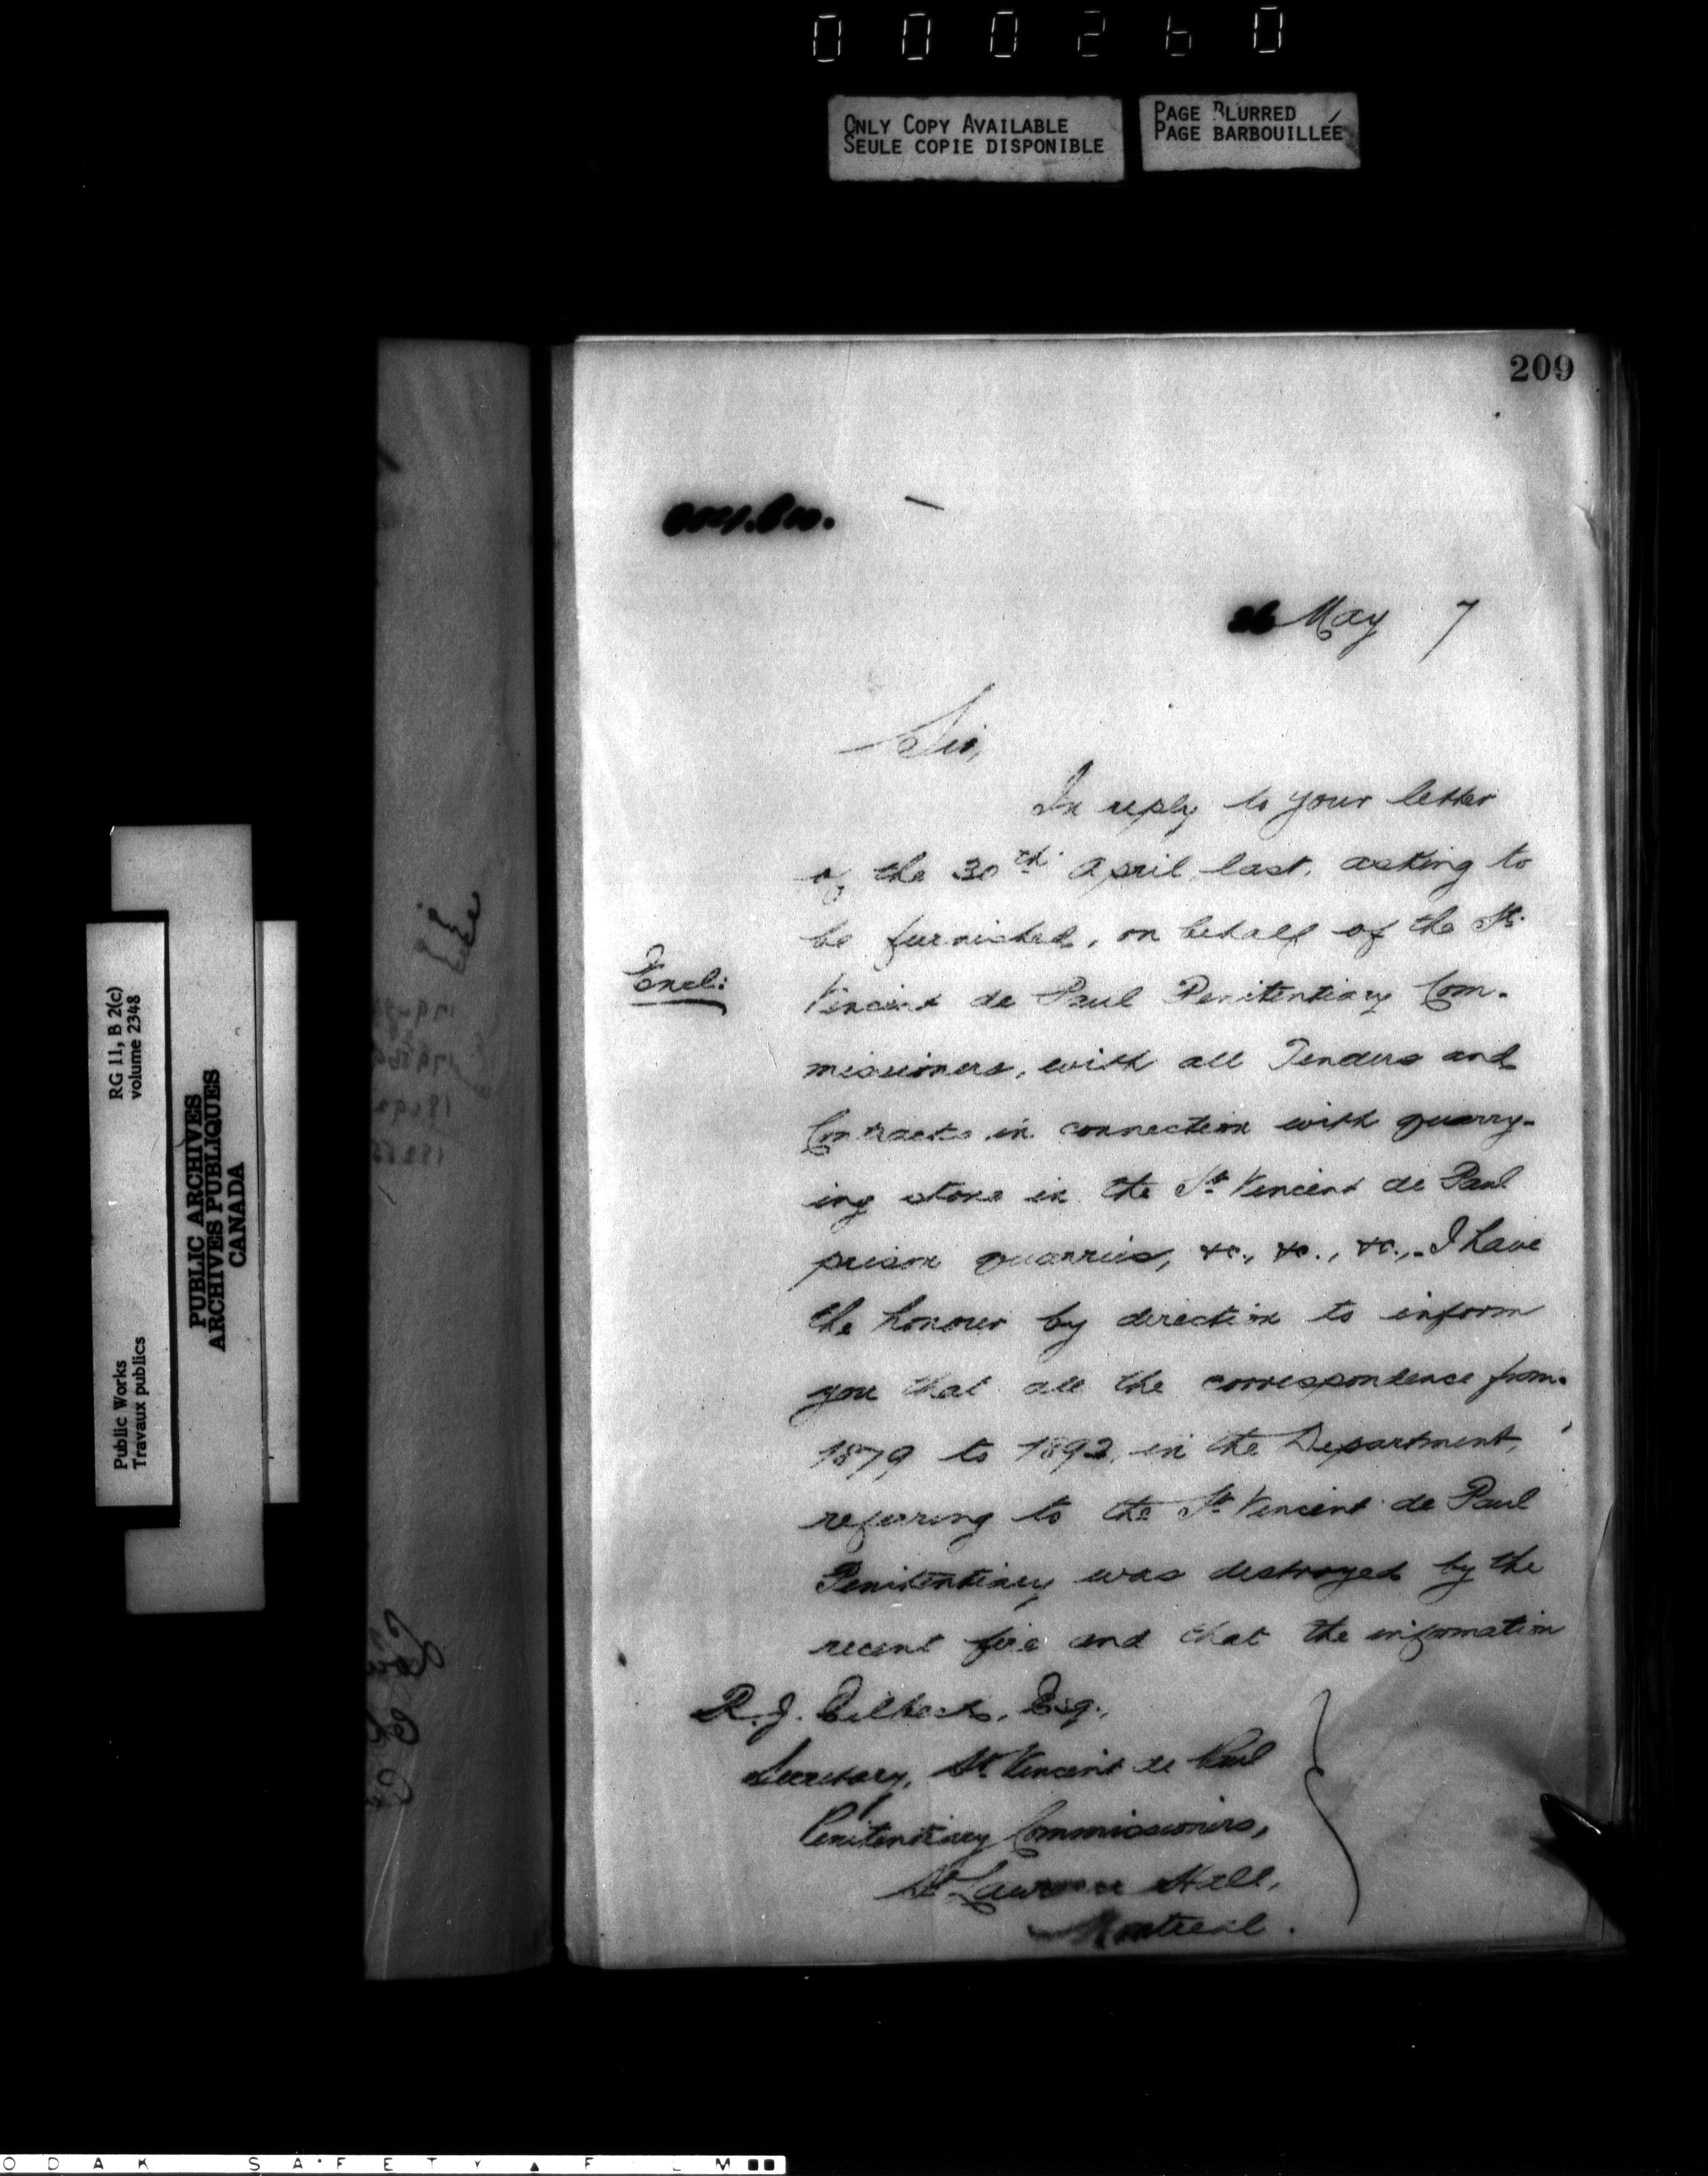 000260
ONLY COPY AVAILABLE
SEULE COPIE DISPONIBLE
PAGE BLURRED
PAGE BARBOUILLÉE
209
May 7
Sir,
In reply to your letter
of the 30th April last, asking to
be furnished, on behalf of the St.
Encl:
Vincent de Paul Penitentiary Com-
missioners, with all Tenders and
Contracts in connection with quarry-
ing stone in the St. Vincent de Paul
prison quarries, &c., &c., &c., - I have
the honour by direction to inform
you that all the correspondence from
1879 to 1892, in the Department,
referring to the St. Vincent de Paul
Penitentiary was destroyed by the
recent fire and that the information
R. J. Esq.,
Secretary, St. Vincent de Paul
Penitentiary Commissioners,
St. Lawrence Hall,
Montreal.
RG 11, B 2(c)
volume 2348
Public Works
Travaux publics
PUBLIC ARCHIVES
ARCHIVES PUBLIQUES
CANADA
ODAK SAFETY FILM